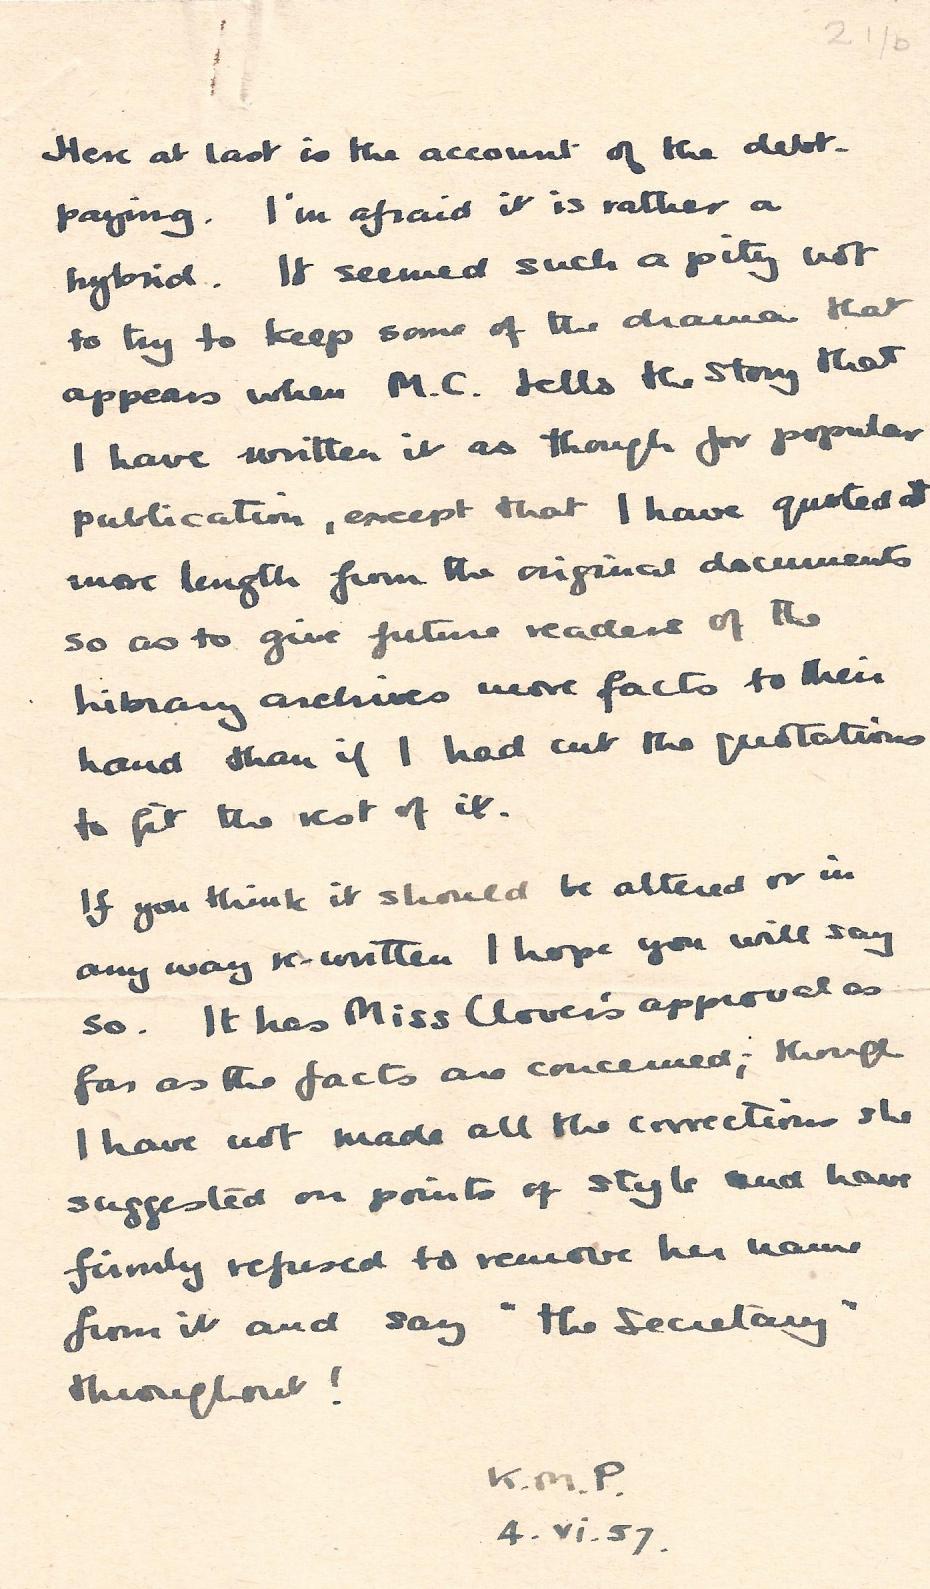 21/b
Here at last is the account of the debt-
paying. I'm afraid it is rather a
hybrid. It seemed such a pity not
to try to keep some of the drama that
appears when M.C. tells the story that
I have written it as though for popular
publication, except that I have quoted at
more length from the original documents
so as to give future readers of the
Library archives more facts to their
hand than if I had cut the quotations
to fit the rest of it.
If you think it should be altered or in
any way re-written I hope you will say
so. It has Miss Clover's approval as
far as the facts are concerned; though
I have not made all the corrections she
suggested on points of style and have
firmly refused to remove her name
from it and say "the Secretary"
throughout!
K.M.P.
4.vi.57.